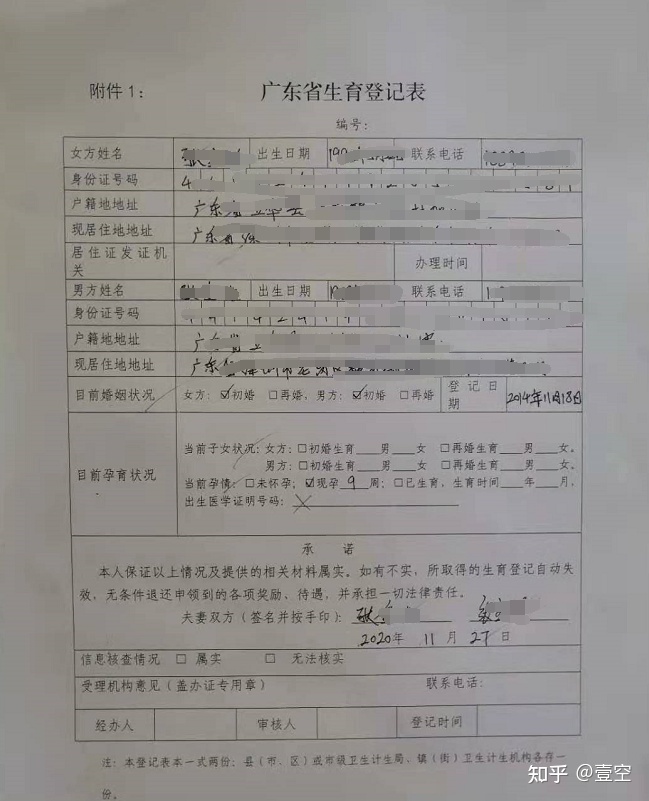 附件1：
广东省生育登记表
编号：
女方姓名 张 出生日期 19 联系电话
身份证号码 4
户籍地地址 广东省
现居住地地址 广东省
居住证发证机关 办理时间
男方姓名 出生日期 联系电话
身份证号码 4 4
户籍地地址 广东省
现居住地地址 广东
目前婚姻状况 女方：☑初婚 □再婚，男方：☑初婚 □再婚 登记日期 2014年11月18日
目前孕育状况
当前子女状况：女方：□初婚生育___男___女 □再婚生育___男___女。
男方：□初婚生育___男___女 □再婚生育___男___女。
当前孕情：□未怀孕；☑现孕 9 周；□已生育，生育时间___年___月，
出生医学证明号码：
承 诺
本人保证以上情况及提供的相关材料属实。如有不实，所取得的生育登记自动失
效，无条件退还申领到的各项奖励、待遇，并承担一切法律责任。
夫妻双方（签名并按手印）：张
2020年 11 月 27 日
信息核查情况 □ 属实 □ 无法核实
受理机构意见（盖办证专用章） 联系电话：
经办人 审核人 登记时间
注：本登记表本一式两份；县（市、区）或市级卫生计生局、镇（街）卫生计生机构各存一
份。
知乎 @壹空